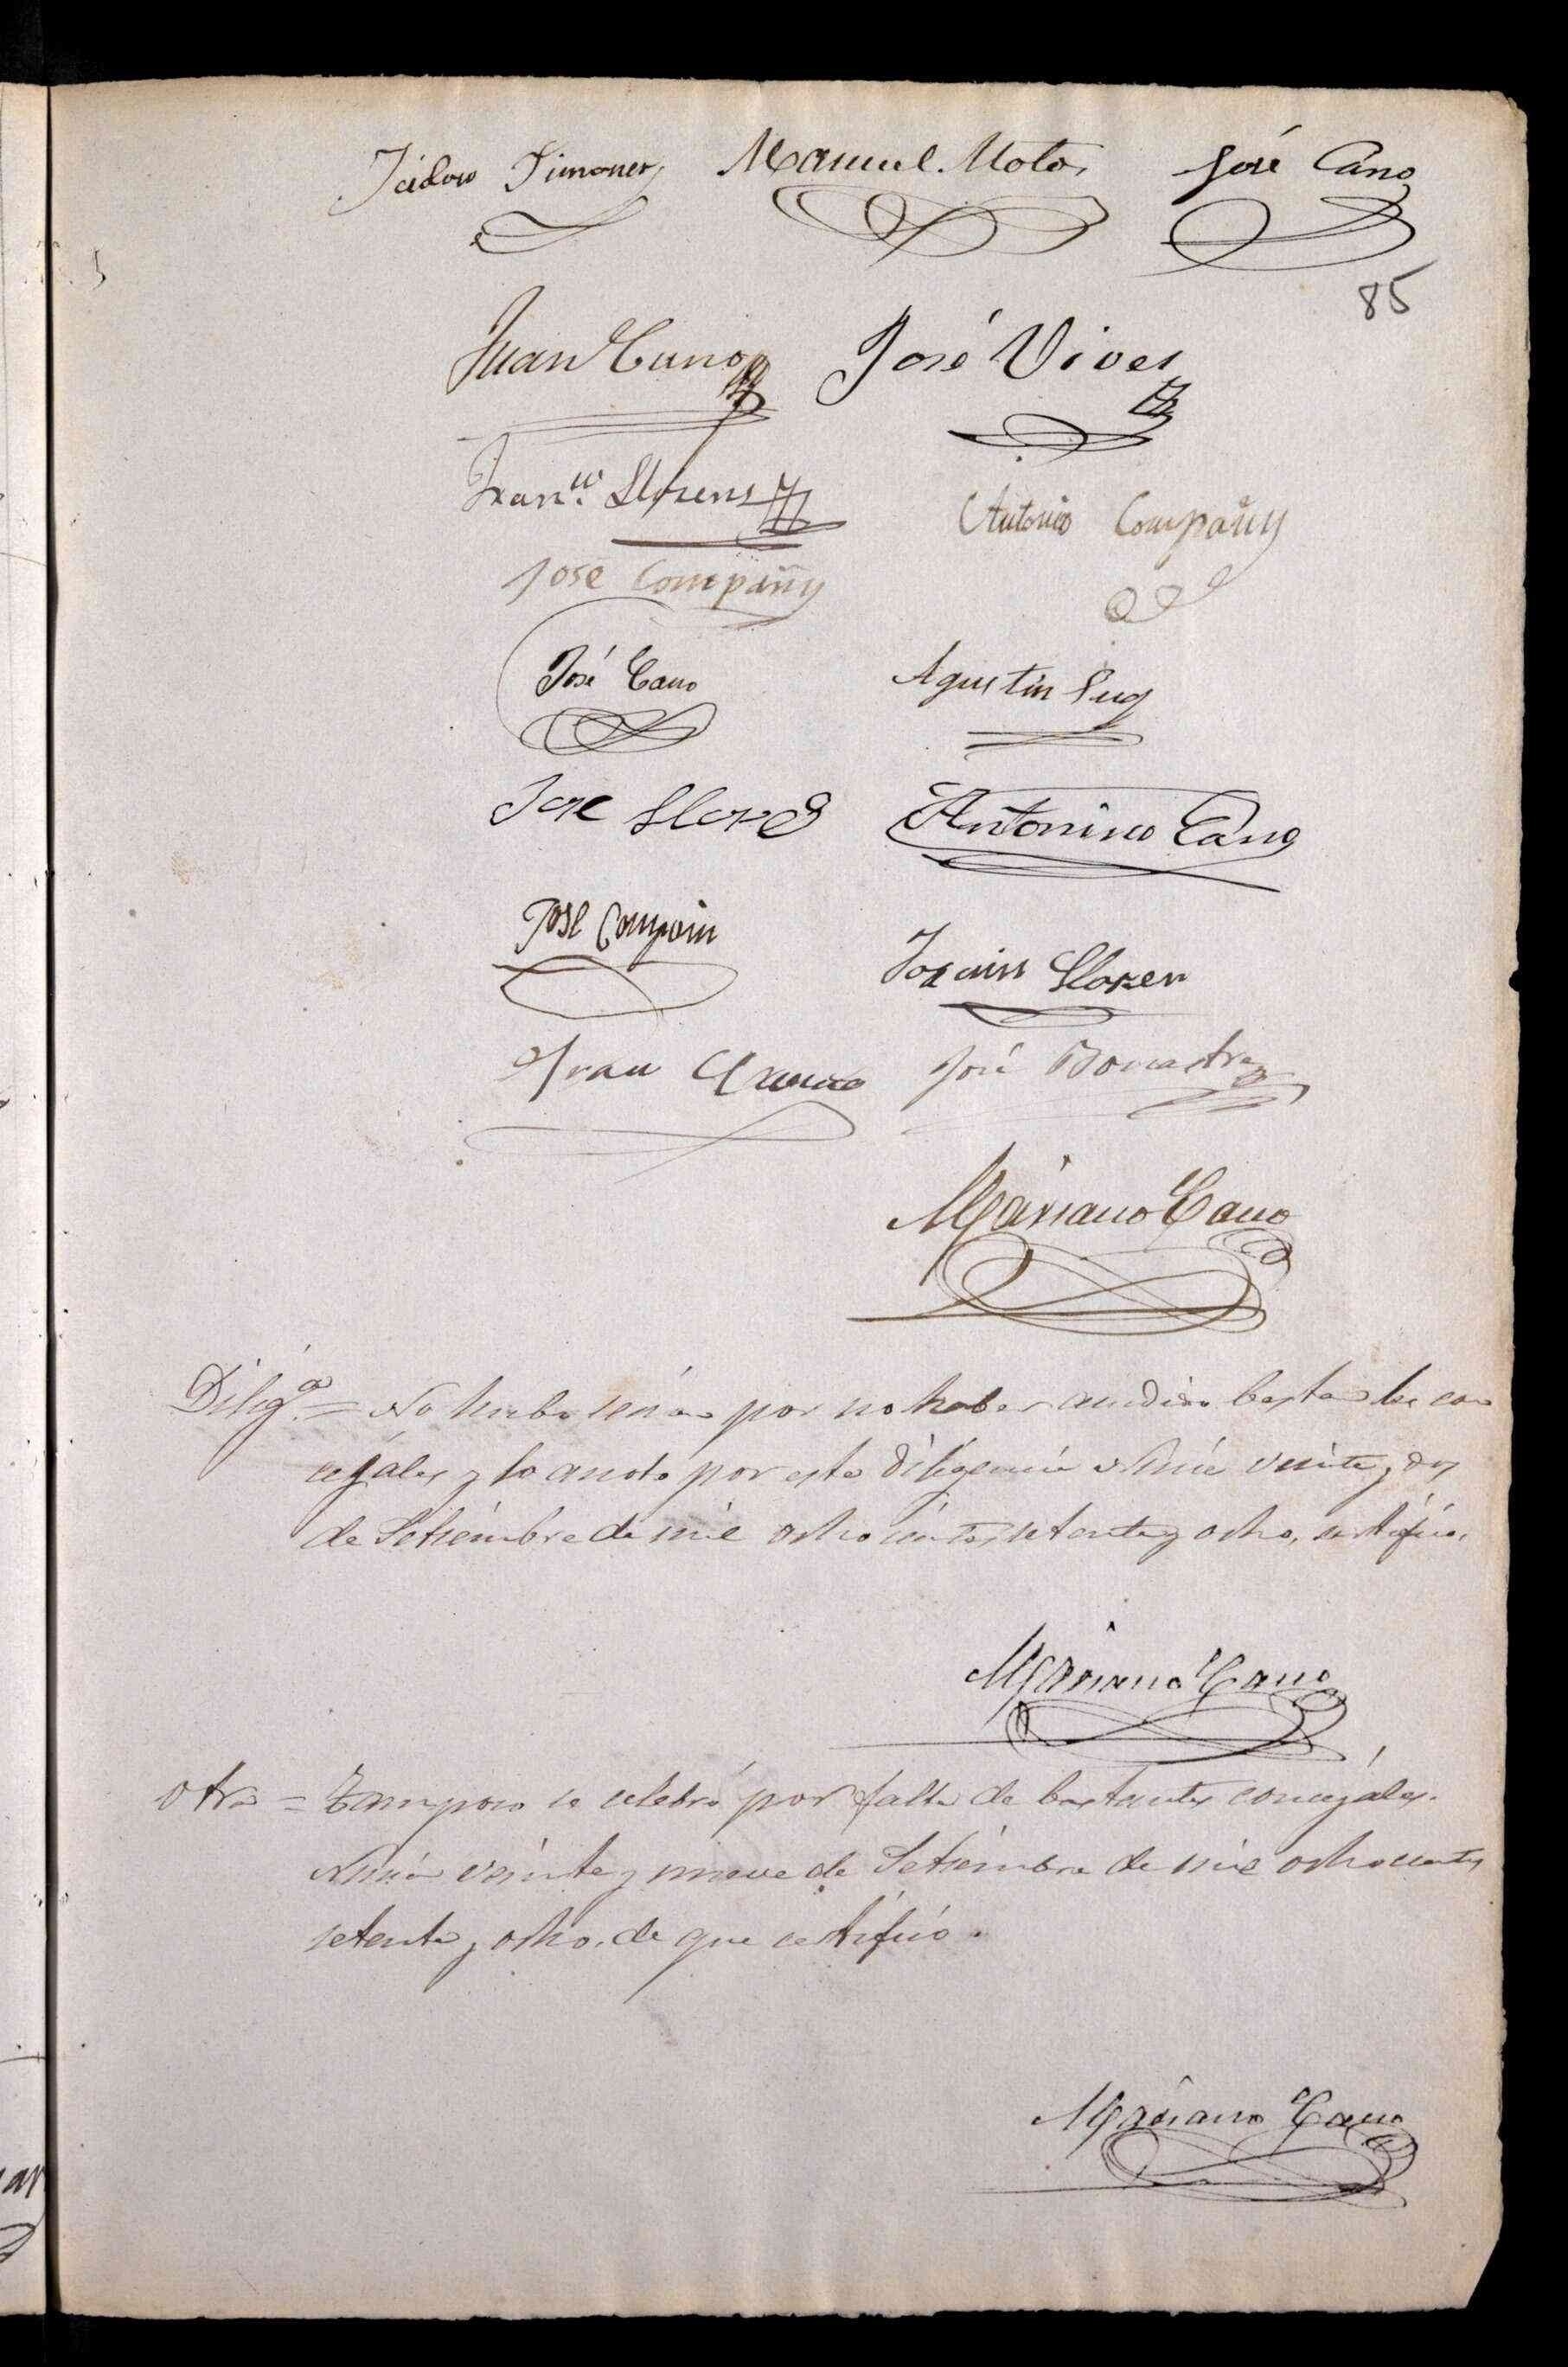 Isidoro Simoner Manuel Motos José Cano
85
Juan Cano José Vives
Fran.co Llorens Antonio Compañy
Jose Compañy
José Cano Agustin Pug
Jose Llores Antonino Cano
Jose Compain
Joaquin Lloren
Fran José Bonastre
Mariano Cano
Dilig.a = No hubo sesion por no haber acudido bastantes con
cejales y lo anoto por esta diligencia veinte y dos
de Setiembre de mil ochocientos setenta y ocho, certifico.
Mariano Cano
Otra = Tampoco se celebró por falta de bastantes concejales.
veinte y nueve de Setiembre de mil ochocientos
setenta y ocho. de que certifico.
Mariano Cano